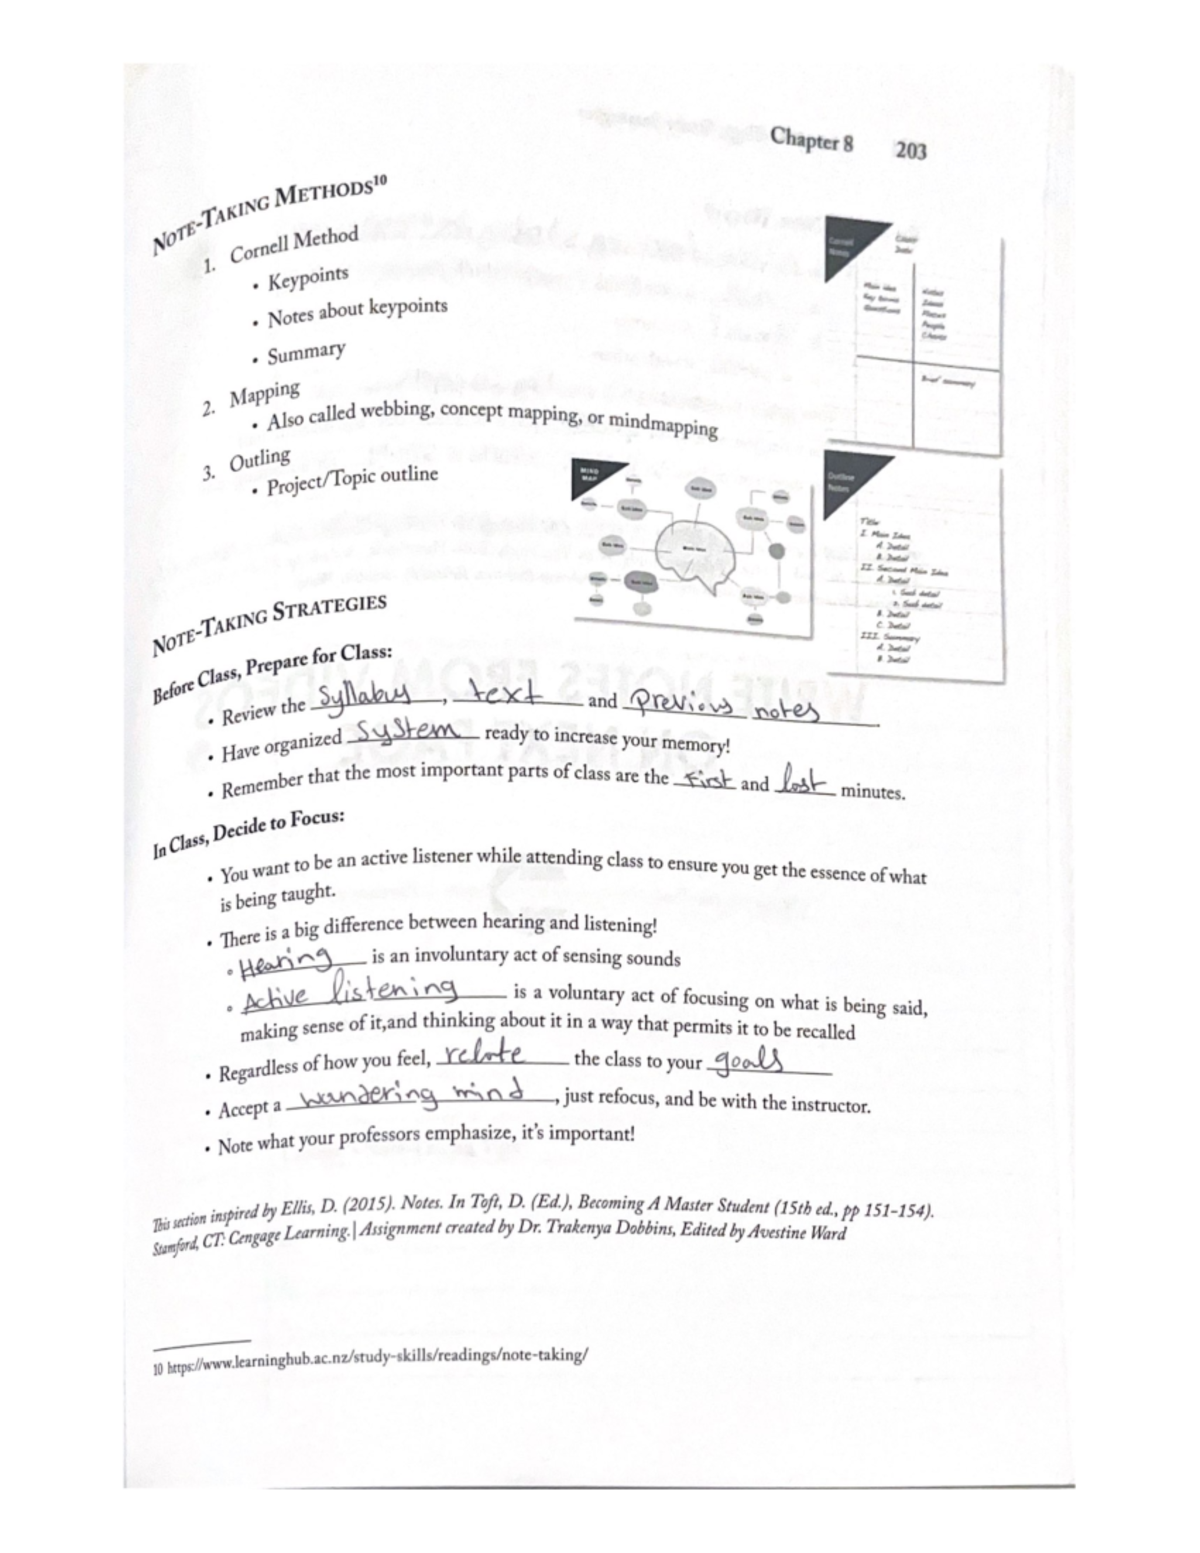 Chapter 8 203
NOTE-TAKING METHODS10
1. Cornell Method
• Keypoints
• Notes about keypoints
• Summary
2. Mapping
• Also called webbing, concept mapping, or mindmapping
3. Outling
• Project/Topic outline
Cornell
Notes
Date
Main idea
Key terms
Questions
Notes
Ideas
Places
People
Charts
Brief summary
MIND
MAP
Outline
Notes
Title
I. Main Idea
A. Detail
B. Detail
II. Second Main Idea
A. Detail
1. Sub detail
2. Sub detail
B. Detail
C. Detail
III. Summary
A. Detail
B. Detail
NOTE-TAKING STRATEGIES
Before Class, Prepare for Class:
• Review the Syllabus, text and Previous notes.
• Have organized System ready to increase your memory!
• Remember that the most important parts of class are the First and last minutes.
In Class, Decide to Focus:
• You want to be an active listener while attending class to ensure you get the essence of what
is being taught.
• There is a big difference between hearing and listening!
◦ Hearing is an involuntary act of sensing sounds
◦ Active listening is a voluntary act of focusing on what is being said,
making sense of it,and thinking about it in a way that permits it to be recalled
• Regardless of how you feel, relate the class to your goals
• Accept a wandering mind, just refocus, and be with the instructor.
• Note what your professors emphasize, it's important!
This section inspired by Ellis, D. (2015). Notes. In Toft, D. (Ed.), Becoming A Master Student (15th ed., pp 151-154).
Stamford, CT: Cengage Learning.| Assignment created by Dr. Trakenya Dobbins, Edited by Avestine Ward
10 https://www.learninghub.ac.nz/study-skills/readings/note-taking/